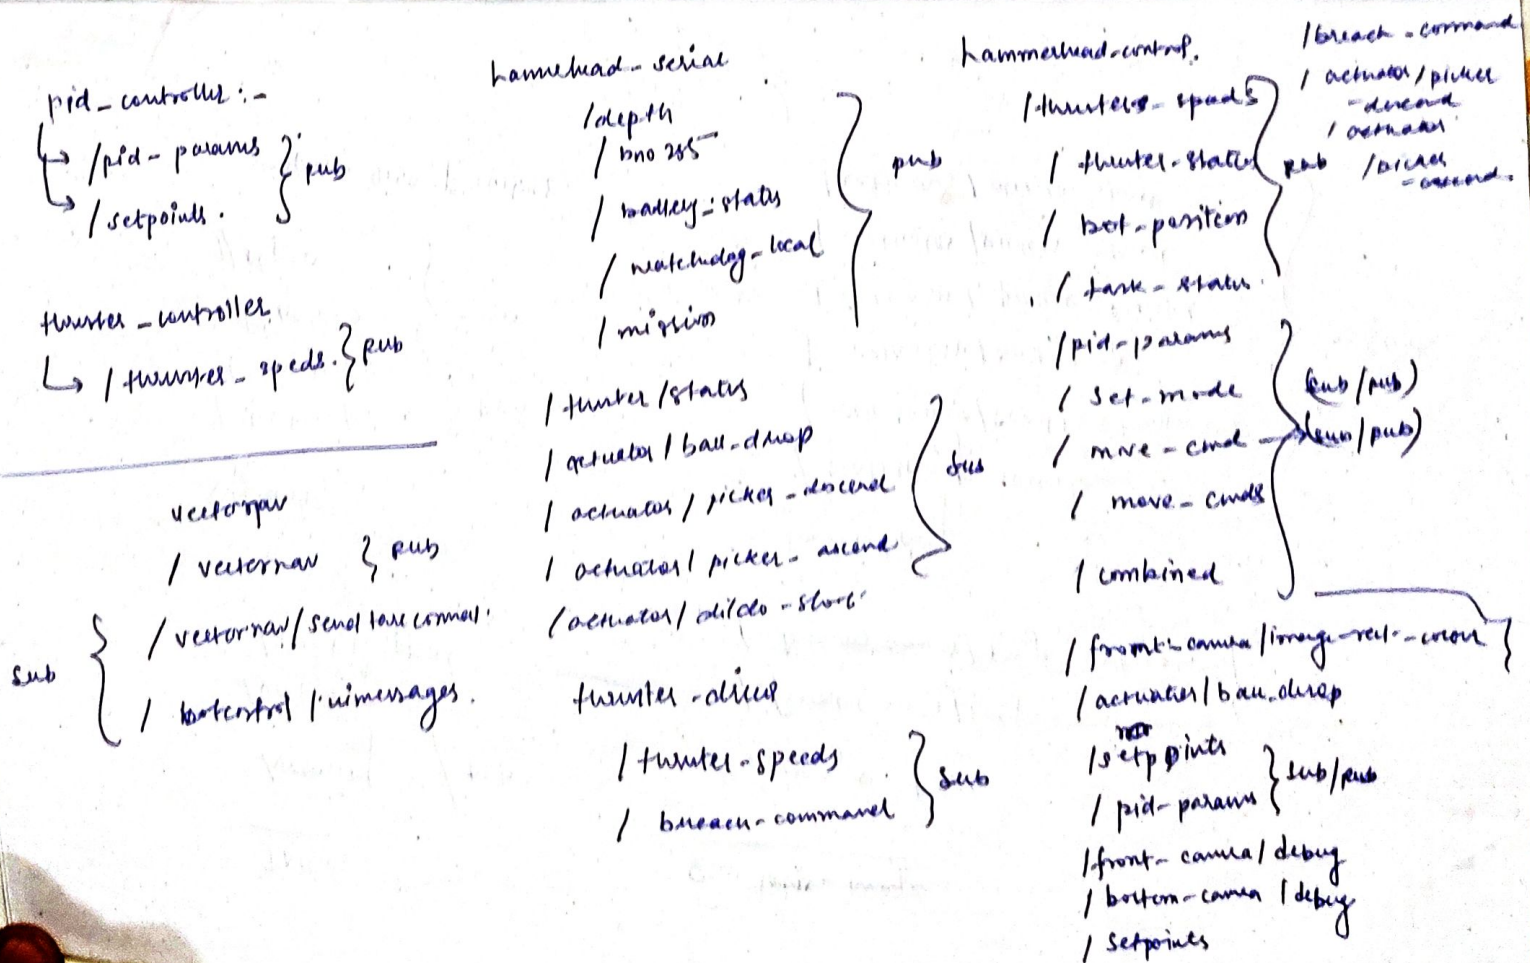 pid_controller :-
/pid-params
/setpoints.
} pub
thruster_controller
/thruster_speeds. } pub
vectornav
/ vectornav } pub
/ vectornav/send
/ botcontrol /uimessages.
sub
hammehead_serial
/depth
/ battery_status
/ watchdog_local
/ mission
pub
/ thruster /status
/ actuator / ball_drop
/ actuator / picker_descend
/ actuator / picker_ascend
/actuator/
sub
/ thruster_speeds
/ breach_command
sub
hammerhead_control.
/thrusters_speeds
/ thruster_status
/ bot_position
/ task_status
pub
/pid-params
/ set_mode
/ move_cmd
/ move_cmds
/ combined
(sub/pub)
(sub/pub)
/ front_camera/image_rect_colour
/ actuator / ball_drop
/setpoints
/ pid-params
} sub/pub
/front_camera/ debug
/ bottom_camera /debug
/ setpoints
/breach_command
/ actuator /picker
-descend
/ actuator
/picker
-ascend.